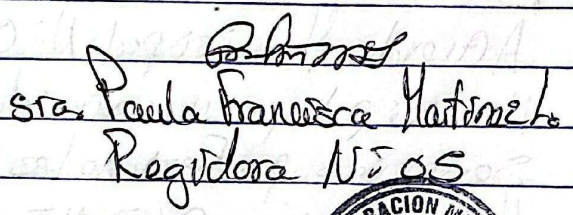 sra. Paula Francisca Martinez L.
Regidora N: 05
RACION M